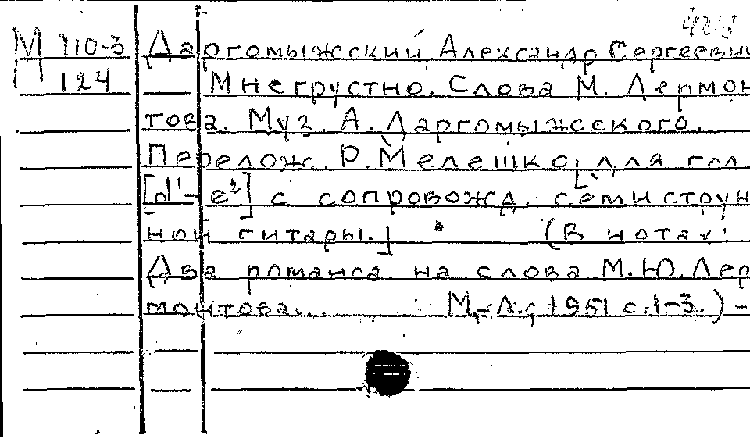 М 110-3 Даргомыжский Александр Сергеевич
П 124 Мне грустно. Слова М. Лермон
това. Муз. А. Даргомыжского.
Перелож. Р. Мелешко, для гол.
[d¹-e²] с сопровожд. семиструн
ной гитары.] (В нотах:
Два романса на слова М.Ю. Лер
монтова... М.-Л., 1951 с. 1-3.) -